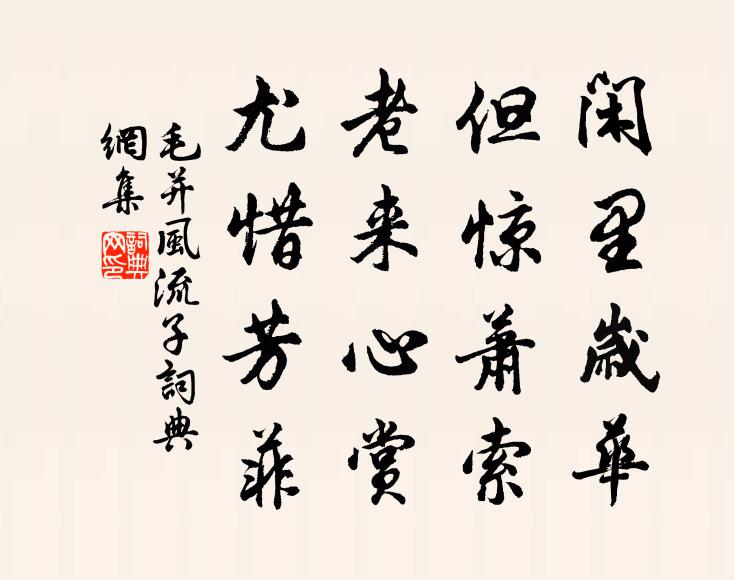 闲里歲華
但惊蕭索
老来心赏
尤惜芳菲
毛并風流子詞典
網集
詞典
网印